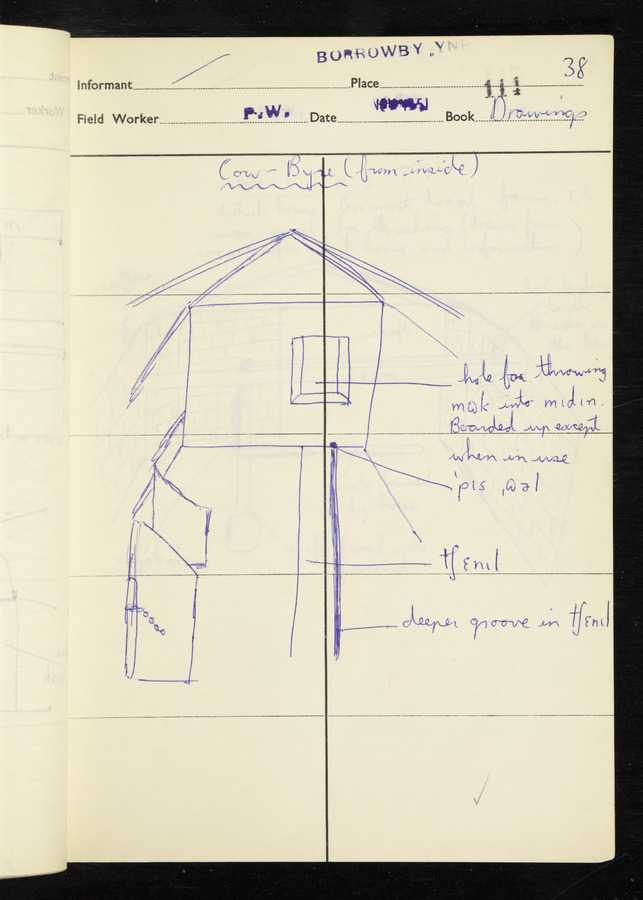 BORROWBY, YN
38
Informant
Place
111
Field Worker P.W. Date Book Drawings
Cow-Byre (from inside)
hole for throwing
mʊk into mɪdɪn.
Boarded up except
when in use
ˈpɪs
tʃɛnɪl
deeper groove in tʃɛnɪl